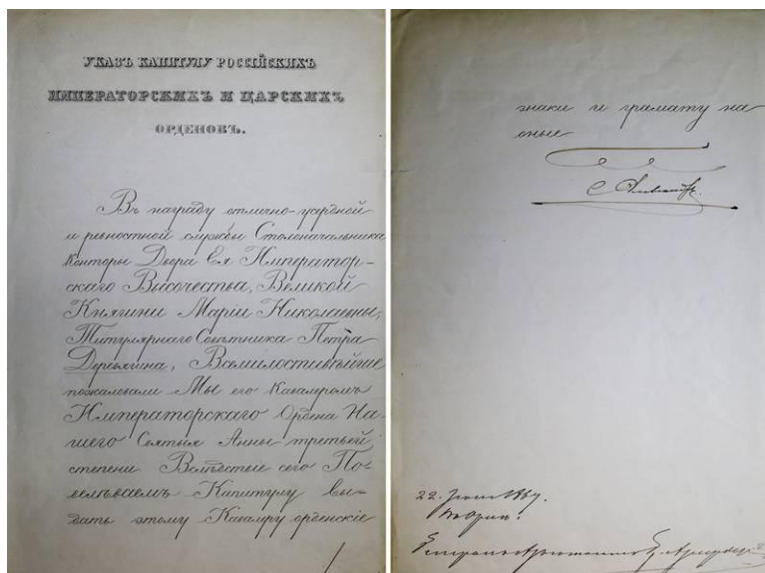 УКАЗЪ КАПИТУЛУ РОССІЙСКИХЪ
ИМПЕРАТОРСКИХЪ И ЦАРСКИХЪ
ОРДЕНОВЪ.
Въ награду отлично-усердной
и ревностной службы Столоначальника
Конторы Двора Ея Император-
скаго Высочества, Великой
Княгини Маріи Николаевны,
Титулярнаго Совѣтника Петра
Деревягина, Всемилостивѣйше
пожаловали Мы его Кавалеромъ
Императорскаго Ордена На-
шего Святыя Анны третьей
степени Вслѣдствіе сего По-
велѣваемъ Капитулу вы-
дать этому Кавалеру орденскіе
знаки и грамату на
оные
22.